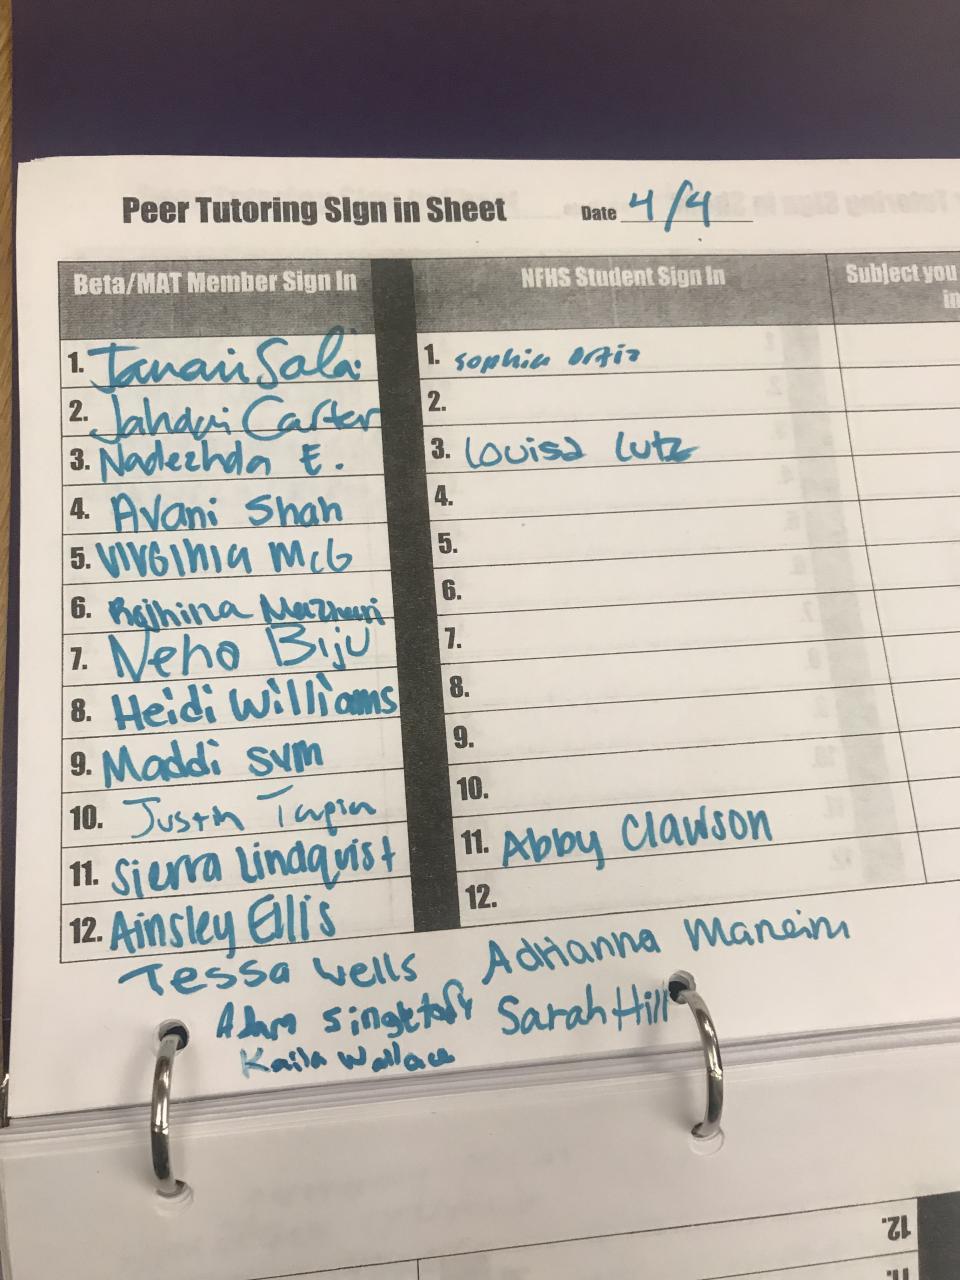 Peer Tutoring Sign in Sheet Date 4/4
Beta/MAT Member Sign In NFHS Student Sign In Subject you
in
1. 1. Sophia Ortiz
2. Carter 2.
3. Nadezhda E. 3. Louisa Lutz
4. Avani Shah 4.
5. Virginia McG 5.
6. 6.
7. Neha Biju 7.
8. Heidi Williams 8.
9. Maddi Sum 9.
10. Justin Tapia 10.
11. Sierra Lindquist 11. Abby Clawson
12. Ainsley Ellis 12.
Tessa Wells Adrianna Mancini
Adam Singletary Sarah Hill
Kaila Wallace
12.
11.